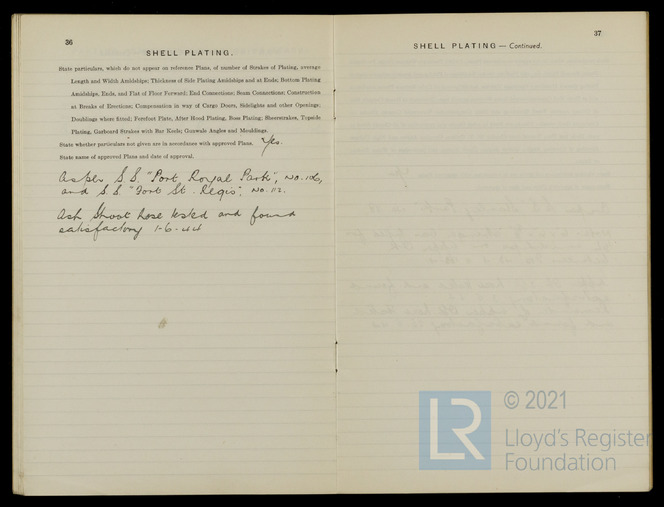 36
SHELL PLATING.
State particulars, which do not appear on reference Plans, of number of Strakes of Plating, average
Length and Width Amidships; Thickness of Side Plating Amidships and at Ends; Bottom Plating
Amidships, Ends, and Flat of Floor Forward; End Connections; Seam Connections; Construction
at Breaks of Erections; Compensation in way of Cargo Doors, Sidelights and other Openings;
Doublings where fitted; Forefoot Plate, After Hood Plating, Boss Plating; Sheerstrakes, Topside
Plating, Garboard Strakes with Bar Keels; Gunwale Angles and Mouldings.
State whether particulars not given are in accordance with approved Plans. Yes.
State name of approved Plans and date of approval.
As per S.S. "Port Royal Park", No. 106,
and S.S. "Fort St. Regis", No. 112.
Ash Shoot hose tested and found
satisfactory 1-6-44
37
SHELL PLATING — Continued.
LR
© 2021
Lloyd's Register
Foundation